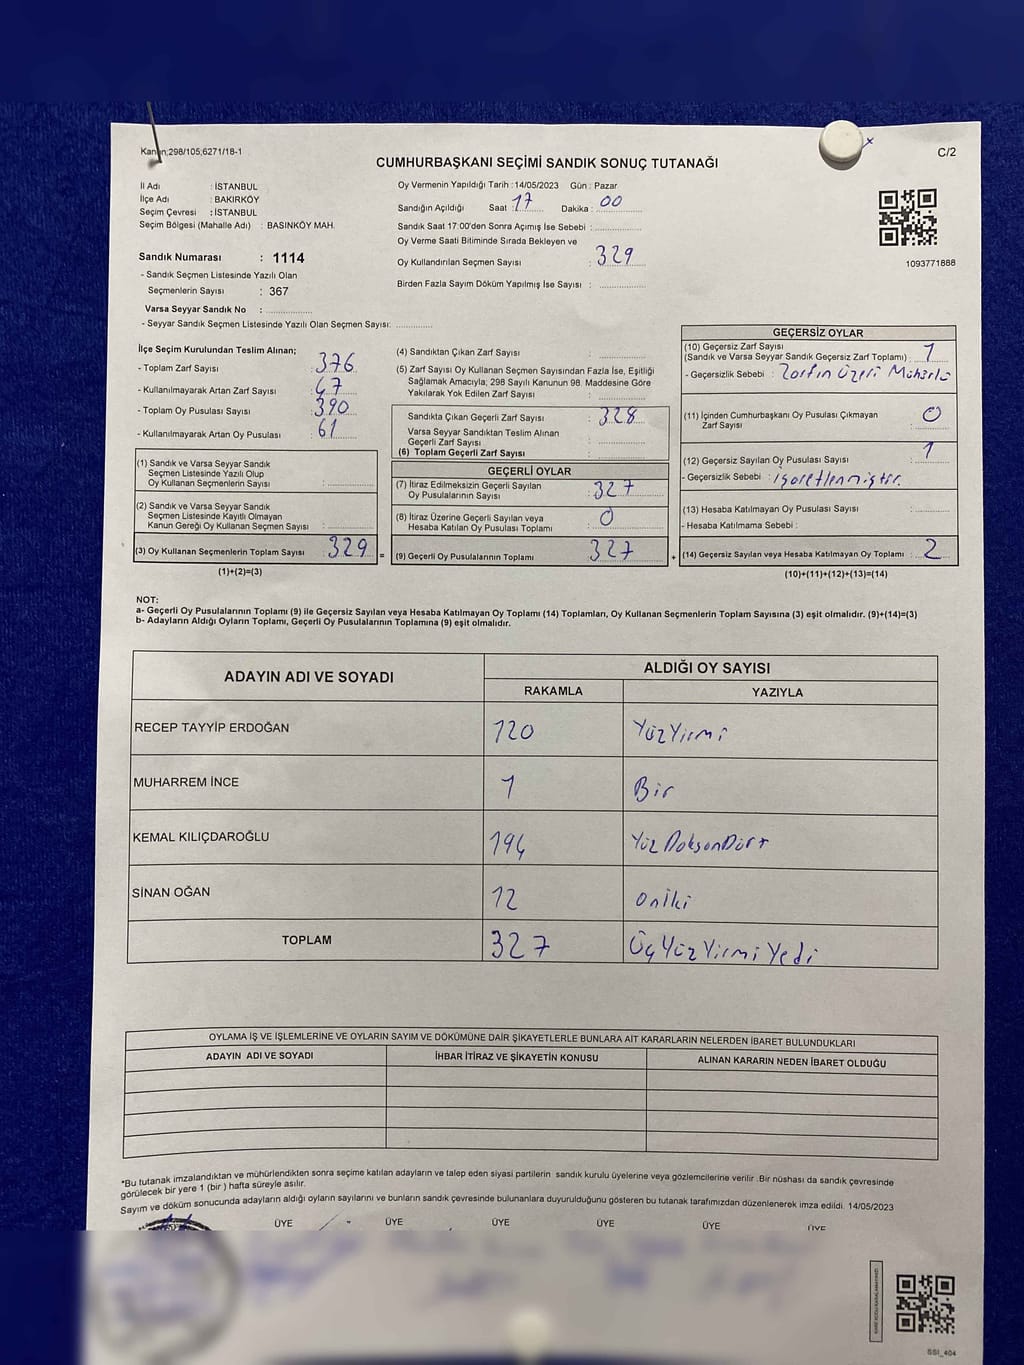 Kanun;298/105;6271/18-1
CUMHURBAŞKANI SEÇİMİ SANDIK SONUÇ TUTANAĞI
C/2
İl Adı : İSTANBUL
İlçe Adı : BAKIRKÖY
Seçim Çevresi : İSTANBUL
Seçim Bölgesi (Mahalle Adı) : BASINKÖY MAH.
Sandık Numarası : 1114
- Sandık Seçmen Listesinde Yazılı Olan
Seçmenlerin Sayısı : 367
Varsa Seyyar Sandık No :
- Seyyar Sandık Seçmen Listesinde Yazılı Olan Seçmen Sayısı:
Oy Vermenin Yapıldığı Tarih : 14/05/2023 Gün : Pazar
Sandığın Açıldığı Saat : 17 Dakika : 00
Sandık Saat 17:00'den Sonra Açımış İse Sebebi :
Oy Verme Saati Bitiminde Sırada Bekleyen ve
Oy Kullandırılan Seçmen Sayısı : 329
Birden Fazla Sayım Döküm Yapılmış İse Sayısı :
1093771888
İlçe Seçim Kurulundan Teslim Alınan;
- Toplam Zarf Sayısı : 376
- Kullanılmayarak Artan Zarf Sayısı : 47
- Toplam Oy Pusulası Sayısı : 390
- Kullanılmayarak Artan Oy Pusulası : 61
(1) Sandık ve Varsa Seyyar Sandık
Seçmen Listesinde Yazılı Olup
Oy Kullanan Seçmenlerin Sayısı :
(2) Sandık ve Varsa Seyyar Sandık
Seçmen Listesinde Kayıtlı Olmayan
Kanun Gereği Oy Kullanan Seçmen Sayısı :
(3) Oy Kullanan Seçmenlerin Toplam Sayısı : 329 =
(1)+(2)=(3)
(4) Sandıktan Çıkan Zarf Sayısı :
(5) Zarf Sayısı Oy Kullanan Seçmen Sayısından Fazla İse, Eşitliği
Sağlamak Amacıyla; 298 Sayılı Kanunun 98. Maddesine Göre
Yakılarak Yok Edilen Zarf Sayısı :
Sandıkta Çıkan Geçerli Zarf Sayısı : 328
Varsa Seyyar Sandıktan Teslim Alınan
Geçerli Zarf Sayısı :
(6) Toplam Geçerli Zarf Sayısı :
GEÇERLİ OYLAR
(7) İtiraz Edilmeksizin Geçerli Sayılan
Oy Pusulalarının Sayısı : 327
(8) İtiraz Üzerine Geçerli Sayılan veya
Hesaba Katılan Oy Pusulası Toplamı : 0
(9) Geçerli Oy Pusulalarının Toplamı : 327 +
GEÇERSİZ OYLAR
(10) Geçersiz Zarf Sayısı
(Sandık ve Varsa Seyyar Sandık Geçersiz Zarf Toplamı) : 1
- Geçersizlik Sebebi : Zarfın Üzeri Mühürlü
(11) İçinden Cumhurbaşkanı Oy Pusulası Çıkmayan
Zarf Sayısı : 0
(12) Geçersiz Sayılan Oy Pusulası Sayısı : 1
- Geçersizlik Sebebi : işaretlenmiştir.
(13) Hesaba Katılmayan Oy Pusulası Sayısı :
- Hesaba Katılmama Sebebi :
(14) Geçersiz Sayılan veya Hesaba Katılmayan Oy Toplamı : 2
(10)+(11)+(12)+(13)=(14)
NOT:
a- Geçerli Oy Pusulalarının Toplamı (9) ile Geçersiz Sayılan veya Hesaba Katılmayan Oy Toplamı (14) Toplamları, Oy Kullanan Seçmenlerin Toplam Sayısına (3) eşit olmalıdır. (9)+(14)=(3)
b- Adayların Aldığı Oyların Toplamı, Geçerli Oy Pusulalarının Toplamına (9) eşit olmalıdır.
ADAYIN ADI VE SOYADI
ALDIĞI OY SAYISI
RAKAMLA YAZIYLA
RECEP TAYYİP ERDOĞAN 120 YüzYirmi
MUHARREM İNCE 1 Bir
KEMAL KILIÇDAROĞLU 194 Yüz DoksanDört
SİNAN OĞAN 12 oniki
TOPLAM 327 ÜçYüzYirmiYedi
OYLAMA İŞ VE İŞLEMLERİNE VE OYLARIN SAYIM VE DÖKÜMÜNE DAİR ŞİKAYETLERLE BUNLARA AİT KARARLARIN NELERDEN İBARET BULUNDUKLARI
ADAYIN ADI VE SOYADI İHBAR İTİRAZ VE ŞİKAYETİN KONUSU ALINAN KARARIN NEDEN İBARET OLDUĞU
*Bu tutanak imzalandıktan ve mühürlendikten sonra seçime katılan adayların ve talep eden siyasi partilerin sandık kurulu üyelerine veya gözlemcilerine verilir .Bir nüshası da sandık çevresinde
görülecek bir yere 1 (bir ) hafta süreyle asılır.
Sayım ve döküm sonucunda adayların aldığı oyların sayılarını ve bunların sandık çevresinde bulunanlara duyurulduğunu gösteren bu tutanak tarafımızdan düzenlenerek imza edildi. 14/05/2023
ÜYE ÜYE ÜYE ÜYE ÜYE ÜYE
SSI_404